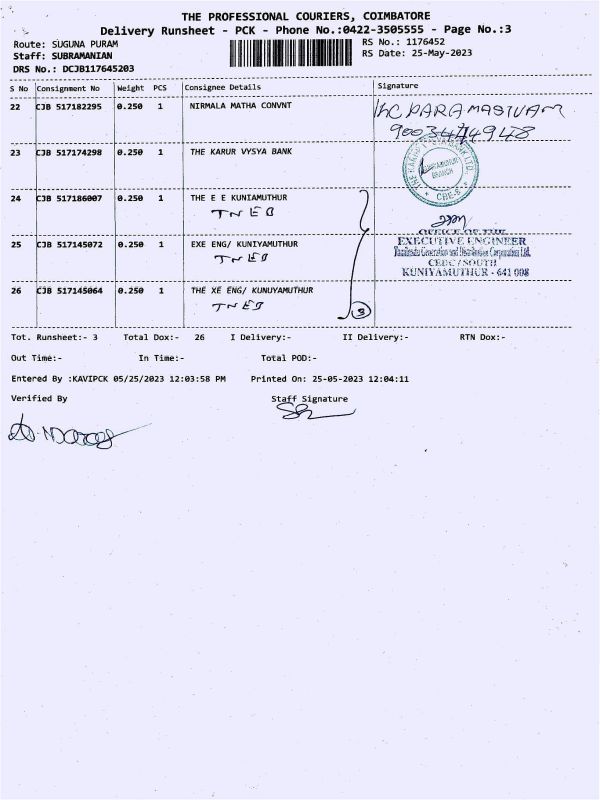 THE PROFESSIONAL COURIERS, COIMBATORE
Delivery Runsheet - PCK - Phone No.:0422-3505555 - Page No.:3
Route: SUGUNA PURAM RS No.: 1176452
Staff: SUBRAMANIAN RS Date: 25-May-2023
DRS No.: DCJB117645203
S No Consignment No Weight PCS Consignee Details Signature
22 CJB 517182295 0.250 1 NIRMALA MATHA CONVNT KC PARAMASIVAM
9003474948
23 CJB 517174298 0.250 1 THE KARUR VYSYA BANK
THE KARUR VYSYA BANK LTD.
BRANCH
CBE-8
24 CJB 517186007 0.250 1 THE E E KUNIAMUTHUR
TNEB
OFFICE OF THE
25 CJB 517145072 0.250 1 EXE ENG/ KUNIYAMUTHUR EXECUTIVE ENGINEER
TNEB Tamilnadu Generation and Distribution Corporation Ltd.
CEDC/SOUTH
KUNIYAMUTHUR - 641 008
26 CJB 517145064 0.250 1 THE XE ENG/ KUNUYAMUTHUR
TNEB
3
Tot. Runsheet:- 3 Total Dox:- 26 I Delivery:- II Delivery:- RTN Dox:-
Out Time:- In Time:- Total POD:-
Entered By :KAVIPCK 05/25/2023 12:03:58 PM Printed On: 25-05-2023 12:04:11
Verified By Staff Signature